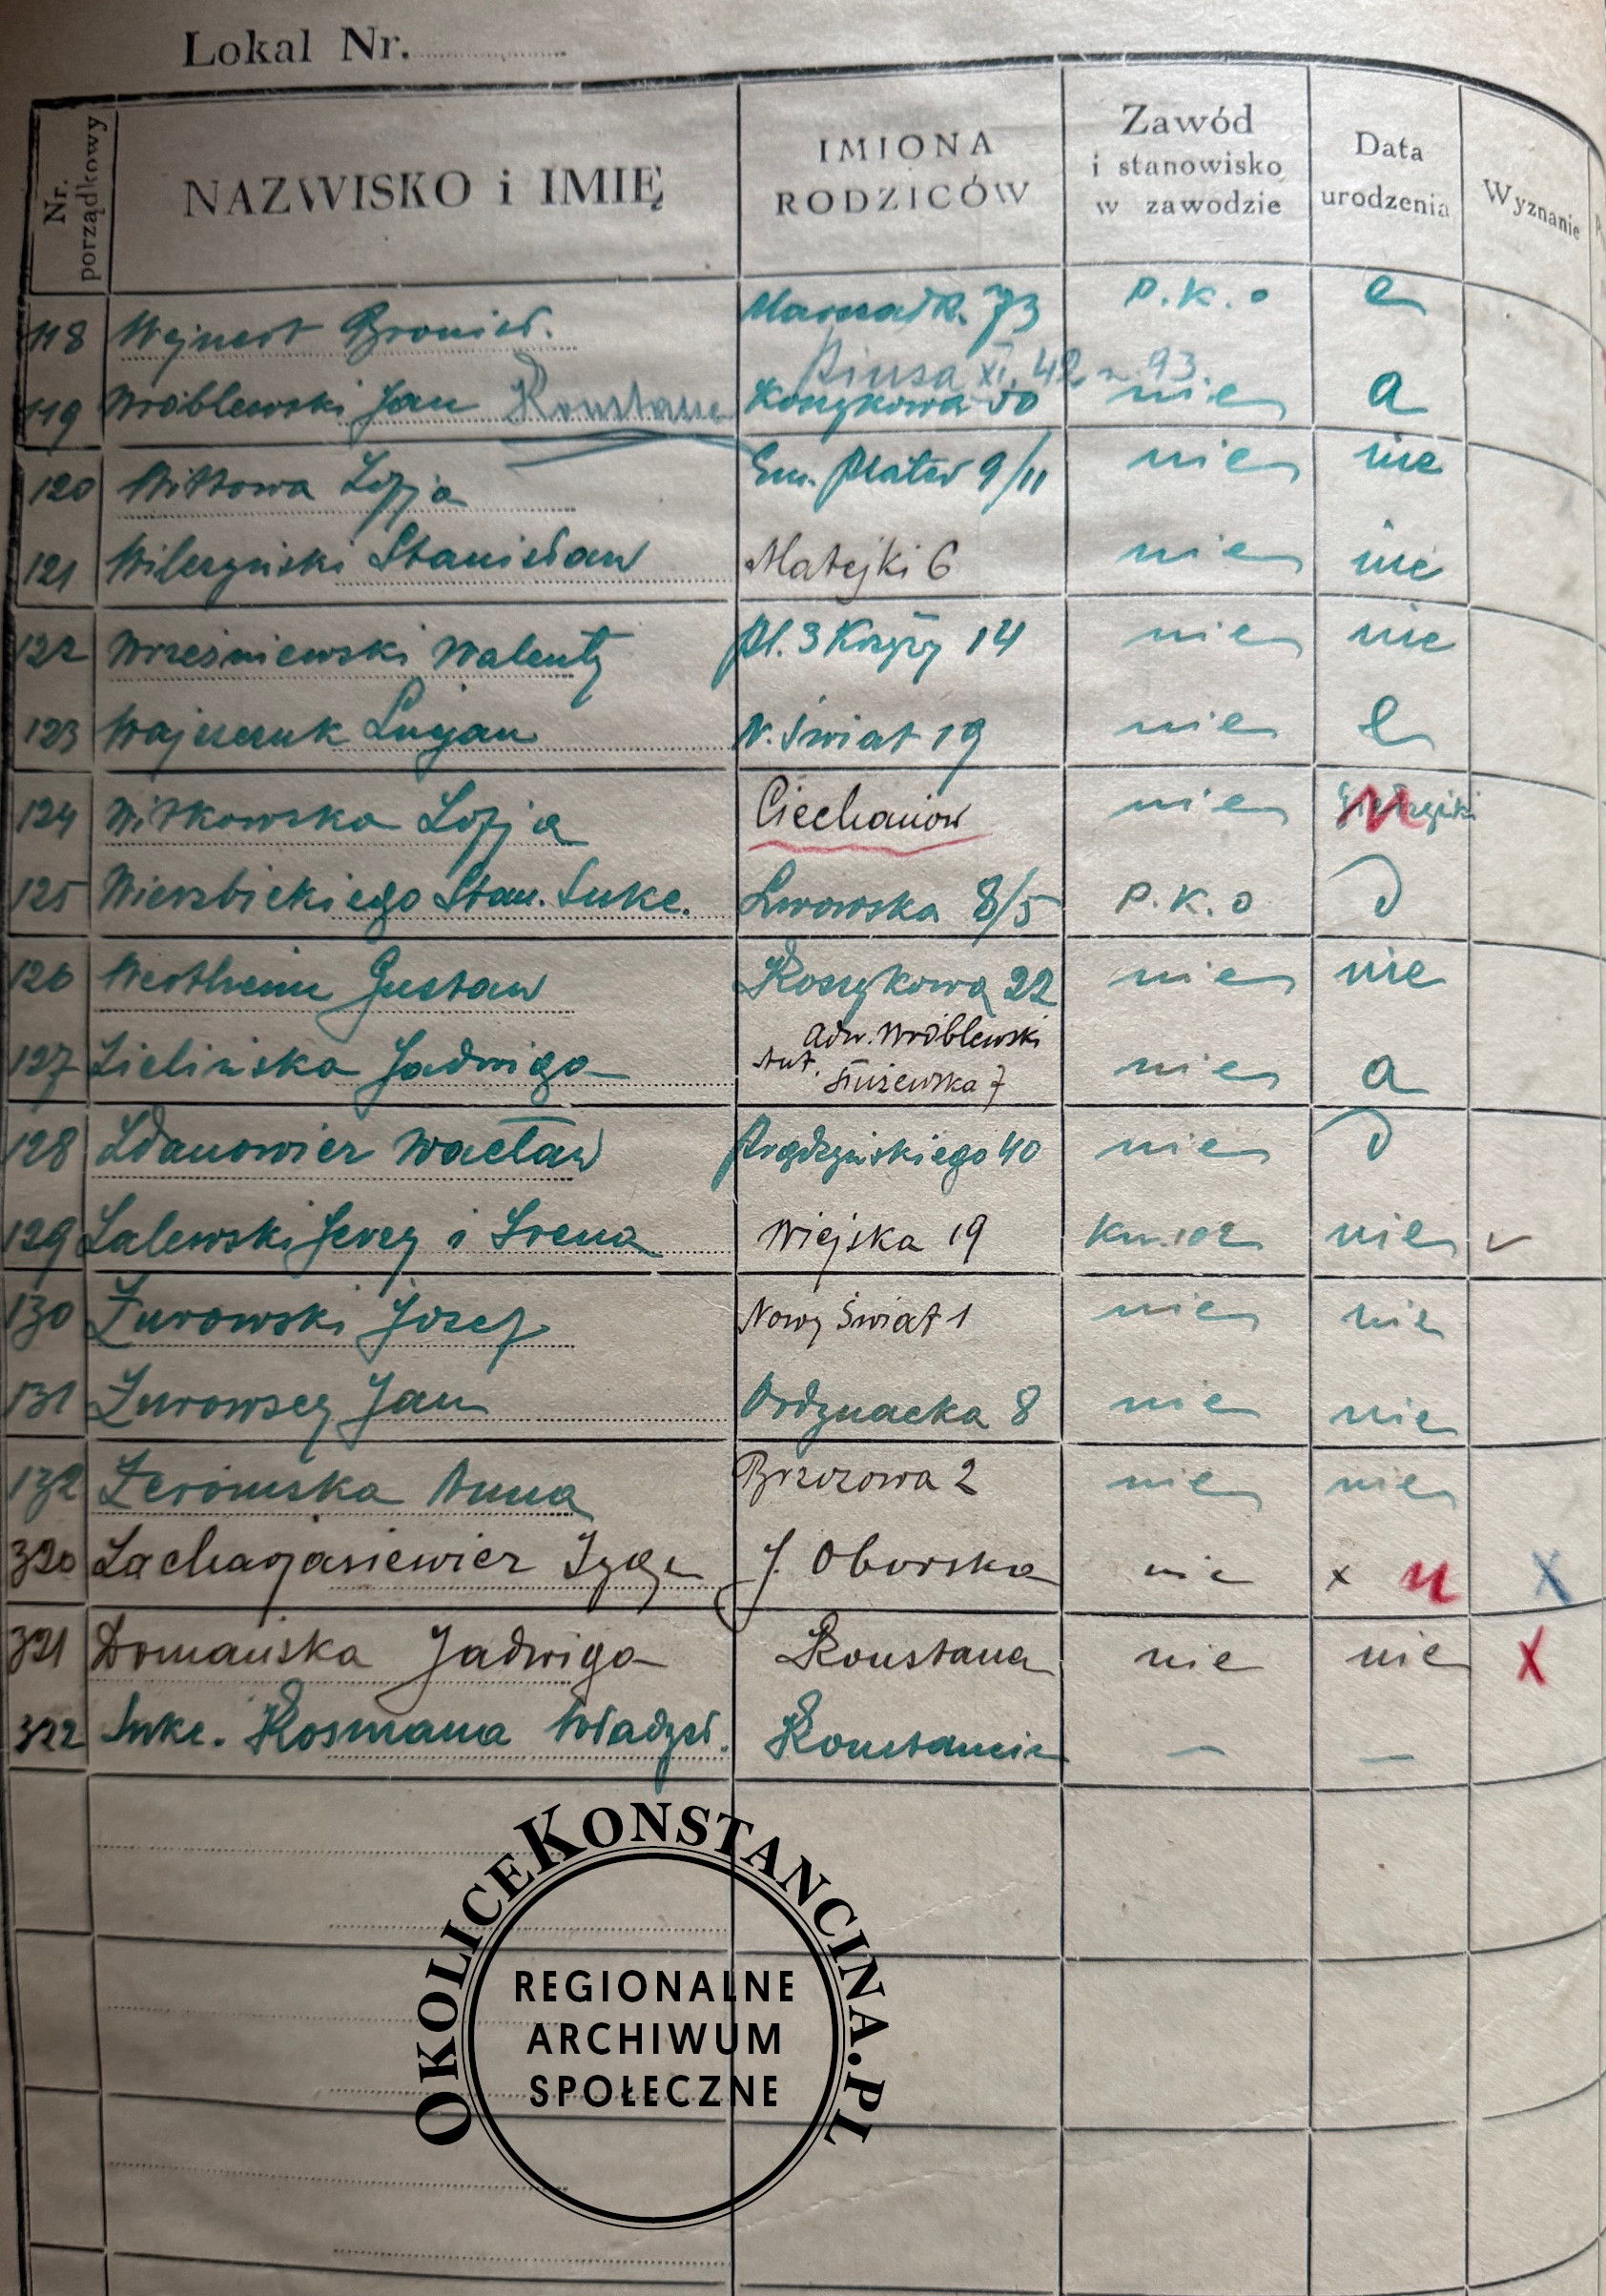 Lokal Nr.
Nr. porządkowy
NAZWISKO i IMIĘ
IMIONA RODZICÓW
Zawód i stanowisko w zawodzie
Data urodzenia
Wyznanie
118 Wejnert Bronisł. Marszałk. 73 P.K.O e
Piusa XI. 42 m. 93.
119 Wróblewski Jan Konstanc Koszykowa 50 nie a
120 Wittowa Zofja Em. Plater 9/11 nie nie
121 Wilczyński Stanisław Matejki 6 nie nie
122 Wrześniewski Walenty Pl. 3 Krzyży 14 nie nie
123 Wajszczuk Lucjan N. Świat 19 nie e
124 Witkowska Zofja Ciechanów nie n
125 Wierzbickiego Stan. Sukc. Lwowska 8/5 P.K.O d
126 Wertheim Gustaw Koszykowa 22 nie nie
127 Zielińska Jadwiga adw. Wróblewski nie a
Służewska 7
128 Zdanowicz Wacław Prądzyńskiego 40 nie d
129 Zalewski Jerzy i Irena Wiejska 19 nie v
130 Żurowski Józef Nowy Świat 1 nie nie
131 Żurowscy Jan Ordynacka 8 nie nie
132 Żeromska Anna Brzozowa 2 nie nie
320 Zachagasiewicz J. Oborska nie x n X
321 Domańska Jadwiga Konstanc nie nie X
322 Sukc. Kosmana Władysł. Konstancin — —
OKOLICEKONSTANCINA.PL
REGIONALNE
ARCHIWUM
SPOŁECZNE